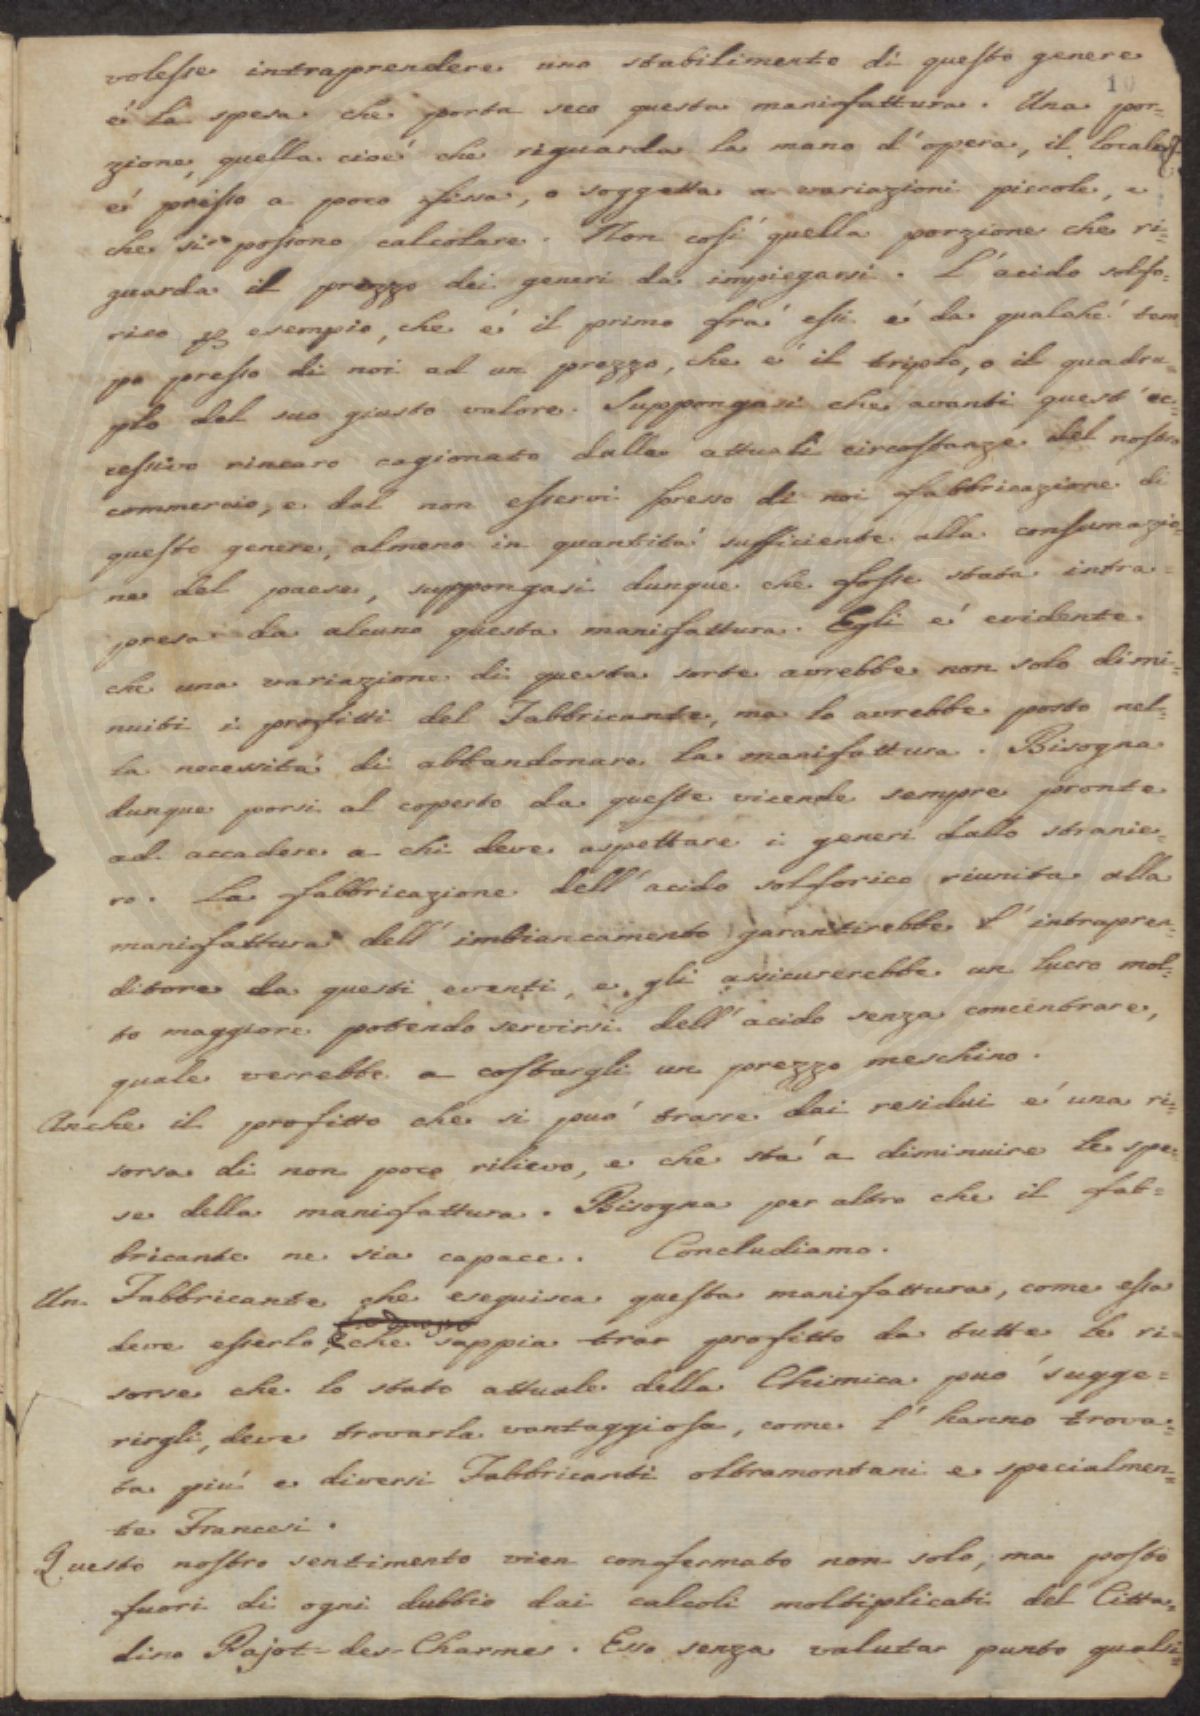 10
volesse intraprendere uno stabilimento di questo genere
é la spesa che porta seco questa manifattura. Una por=
zione, quella cioé che riguarda la mano d'opera, il locale &.
é presso a poco fissa, o soggetta a variazioni piccole, e
che si possono calcolare. Non cosí quella porzione che ri=
guarda il prezzo dei generi da impiegarsi. L'acido solfo=
rico p esempio, che é il primo frá essi é da qualche tem
po presso di noi ad un prezzo, che é il triplo, o il quadru=
plo del suo giusto valore. Suppongasi che avanti quest'ec=
cessivo rincaro cagionato dalle attuali circostanze del nostro
commercio, e dal non esservi presso di noi fabbricazione di
questo genere, almeno in quantitá sufficiente alla consumazio=
ne del paese, suppongasi dunque che fosse stata intra=
presa da alcuno questa manifattura. Egli é evidente
che una variazione di questa sorte avrebbe non solo dimi=
nuiti i profitti del Fabbricante, ma lo avrebbe posto nel=
la necessitá di abbandonare la manifattura. Bisogna
dunque porsi al coperto da queste vicende sempre pronte
ad accadere a chi deve aspettare i generi dallo stranie=
ro. La fabbricazione dell'acido solforico riunita alla
manifattura dell'imbiancamento garantirebbe l'intrapren=
ditore da questi eventi, e gli assicurerebbe un lucro mol=
to maggiore potendo servirsi dell'acido senza concentrare,
quale verrebbe a costargli un prezzo meschino.
Anche il profitto che si puó trarre dai residui é una ri=
sorsa di non poco rilievo, e che stá a diminuire le spe=
se della manifattura. Bisogna per altro che il fab=
bricante ne sia capace. Concludiamo.
Un Fabbricante che eseguisca questa manifattura, come essa
deve esserlo, e che sappia trar profitto da tutte le ri=
sorse che lo stato attuale della Chimica puó sugge=
rirgli, deve trovarla vantaggiosa, come l'hanno trova=
ta piú e diversi Fabbricanti oltramontani e specialmen=
te Francesi.
Questo nostro sentimento vien confermato non solo, ma posto
fuori di ogni dubbio dai calcoli moltiplicati del Citta=
dino Pajot-des-Charmes. Esso senza valutar punto qualsi=